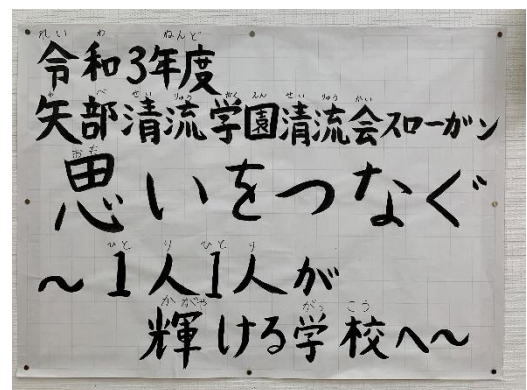 れいわ ねんど
令和3年度
やべせいりゅうがくえんせいりゅうかい
矢部清流学園清流会スローガン
おも
思いをつなぐ
ひとりひとり
〜1人1人が
かがや がっこう
輝ける学校へ〜